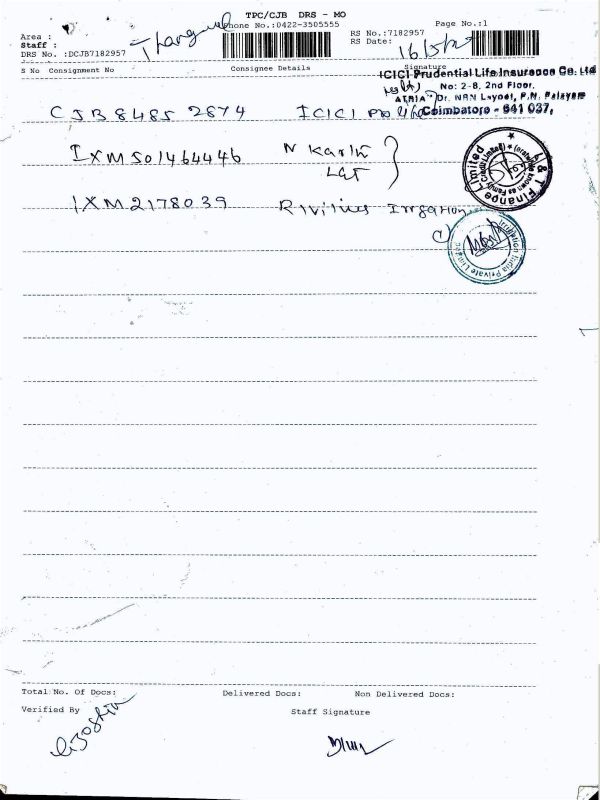 TPC/CJB DRS - MO
Phone No.:0422-3505555
Page No.:1
Area :
Staff :
DRS No. :DCJB7182957
RS No.:7182957
RS Date:
S No Consignment No
Consignee Details
Signature
ICICI Prudential Life Insurance Co. Ltd
No: 2-8, 2nd Floor,
ATRIA Dr. NRN Layout, P.N. Palayam
Coimbatore - 641 037.
CJB8485 2874 ICICI Pro Life
IXM501464446 N Karthi
L&T
IXM2178039
Total No. Of Docs:
Delivered Docs:
Non Delivered Docs:
Verified By
Staff Signature